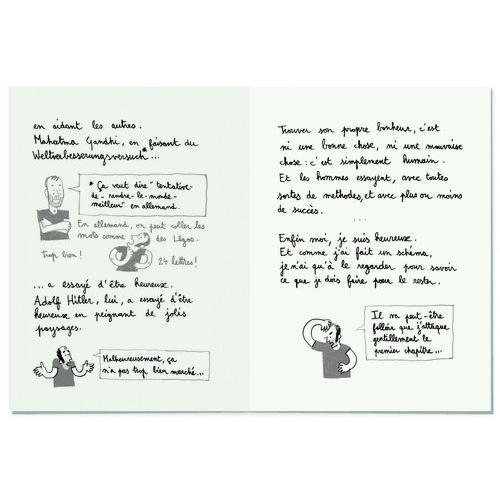 en aidant les autres.
Mahatma Gandhi, en faisant du
Weltverbesserungsversuch*...
* Ça veut dire "tentative-
de-rendre-le-monde-
meilleur" en allemand.
En allemand, on peut coller les
mots comme des Légos.
Trop bien !
24 lettres !
...a essayé d'être heureux.
Adolf Hitler, lui, a essayé d'être
heureux en peignant de jolis
paysages.
Malheureusement, ça
n'a pas trop bien marché...
Trouver son propre bonheur, c'est
ni une bonne chose, ni une mauvaise
chose : c'est simplement humain.
Et les hommes essayent, avec toutes
sortes de méthodes, et avec plus ou moins
de succès.
...
Enfin moi, je suis heureux.
Et comme j'ai fait un schéma,
je n'ai qu'à le regarder pour savoir
ce que je dois faire pour le rester.
Il va peut-être
falloir que j'attaque
gentillement le
premier chapitre...